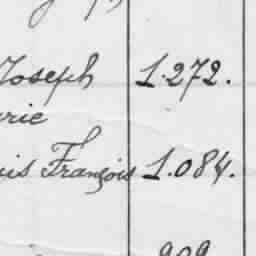 Joseph 1.272.
rie
uis François 1.084.
909